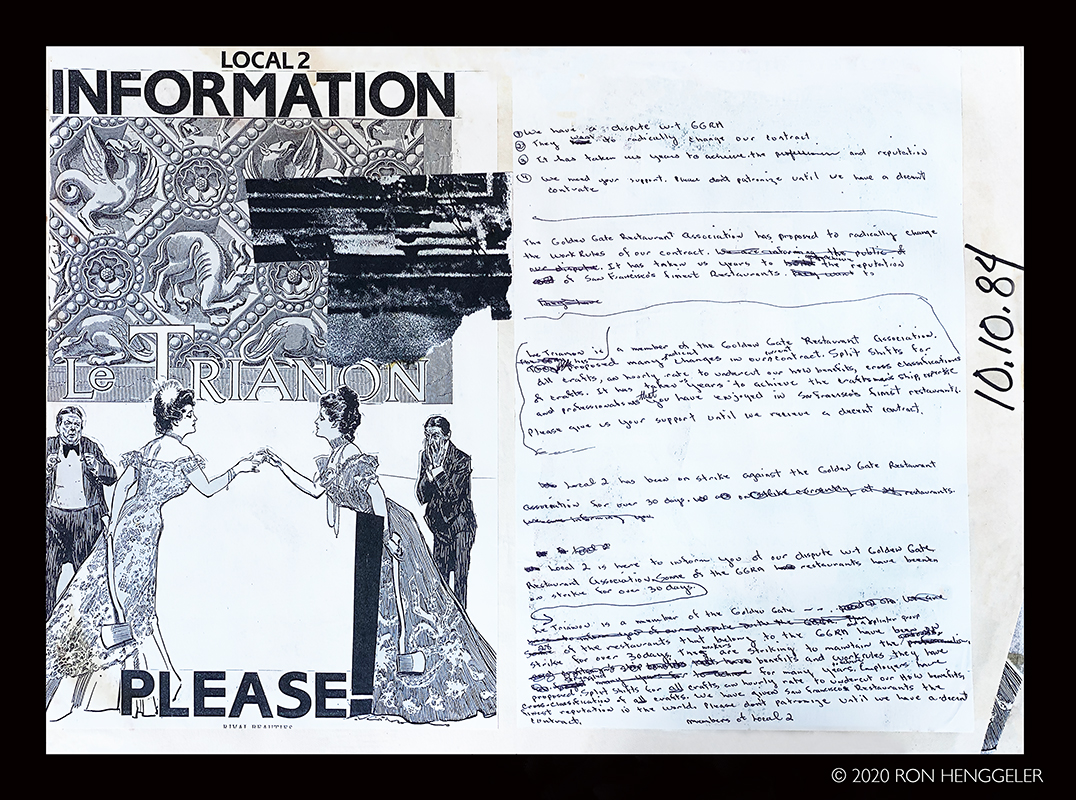 LOCAL 2
INFORMATION
Le TRIANON
PLEASE!
RIVAL BEAUTIES
① We have a dispute w/t GGRA
② They want to radically change our contract
③ It has taken us years to achieve the and reputation
④ We need your support. Please don't patronize until we have a decent
contract
The Golden Gate Restaurant Association has proposed to radically change
the work Rules of our contract. We are informing the public of
our dispute. It has taken us years to the reputation
of San Francisco's finest Restaurants. They want to
Le Trianon is a member of the Golden Gate Restaurant Association.
proposed many radical changes in our current contract. Split shifts for
all crafts, an hourly rate to undercut our H&W benefits, cross classifications
of crafts. It has taken years to achieve the craftsmanship, expertise
and professionalism that you have enjoyed in San Francisco's finest restaurants.
Please give us your support until we receive a decent contract.
Local 2 has been on strike against the Golden Gate Restaurant
Association for over 30 days. on strike currently at restaurants.
we are informing you
Local 2 is here to inform you of our dispute w/t Golden Gate
Restaurant Association. Some of the GGRA restaurants have been
on strike for over 30 days.
Le Trianon is a member of the Golden Gate
of the restaurants that belong to the GGRA have
strike for over 30 days. They are seeking to maintain the
benefits and work rules they have
for many years. Employers have
proposed Split shifts for all crafts an hourly rate to undercut our H&W benefits,
cross-classification of all crafts. We have given San Francisco Restaurants the
finest reputation in the world. Please don't patronize until we have a decent
contract.
members of Local 2
10.10.84
© 2020 RON HENGGELER